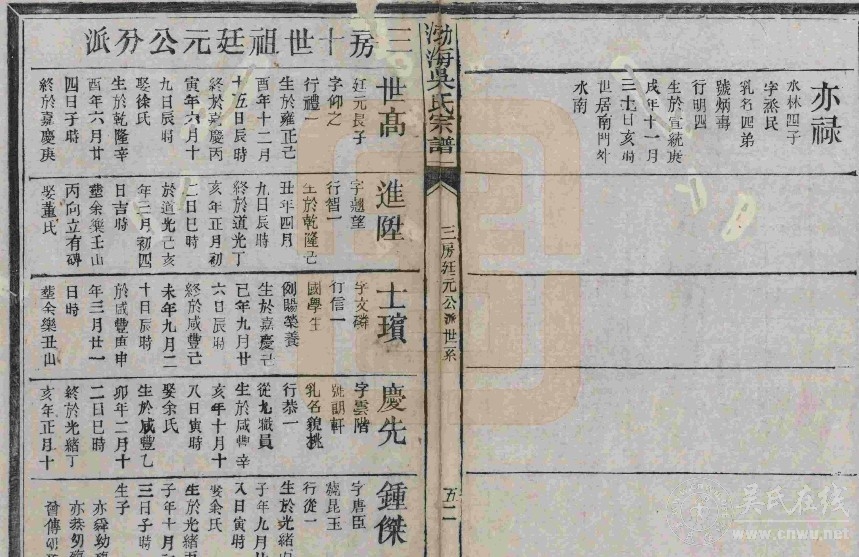 亦祿
水林四子
字烝民
乳名四弟
號炳壽
行明四
生於宣統庚
戌年十一月
三十日亥時
世居南門外
水南
渤海吳氏宗譜
三房廷元公派世系
五二
三房十世祖廷元公分派
世高
廷元長子
字仰之
行禮一
生於雍正己
酉年十二月
十五日辰時
終於嘉慶丙
寅年六月十
九日辰時
娶徐氏
生於乾隆辛
酉年六月廿
四日子時
終於嘉慶庚
進陞
字翹望
行智一
生於乾隆己
丑年四月
九日辰時
終於道光丁
亥年正月初
二日巳時
於道光己亥
年二月初四
日吉時
塟余樂壬山
丙向立有碑
娶董氏
士璸
字文磷
行信一
國學生
例賜榮養
生於嘉慶己
巳年九月廿
六日辰時
終於咸豐己
未年九月二
十日辰時
於咸豐庚申
年三月廿一
日時
塟余樂丑山
慶先
字雲階
號朗軒
乳名貌桃
行恭一
從九職員
生於咸豐辛
亥年十月十
八日寅時
娶余氏
生於咸豐乙
卯年二月十
二日巳時
終於光緒丁
亥年正月十
鍾傑
字唐臣
號昆玉
行從一
生於光緒
子年九月廿
八日寅時
娶余氏
生於光緒
子年十月
三日子時
生子
亦舜幼
亦蔡幼